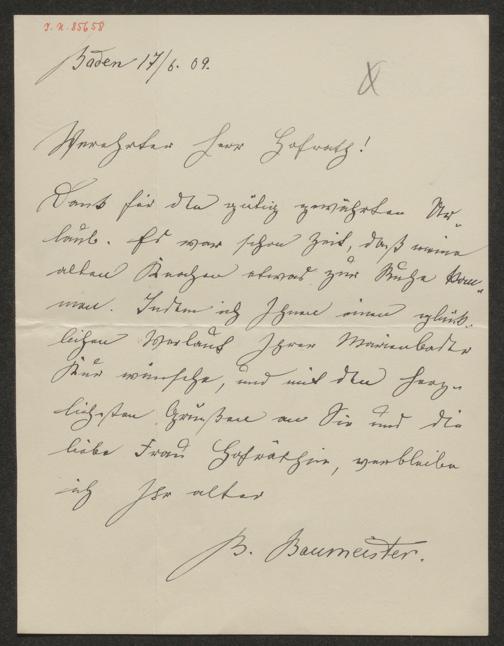 J. N. 85658
Baden 17/6. 09.
Verehrter Herr Hofrath!
Dank für den gütig gewährten Ur-
laub. Es war schon Zeit, daß meine
alten Knochen etwas zur Ruhe kom-
men. Indem ich Ihnen einen glück-
lichen Verlauf Ihrer Marienbader
Kur wünsche, und mit den herz-
lichsten Grüßen an Sie und die
liebe Frau Hofräthin, verbleibe
ich Ihr alter
B. Baumeister.